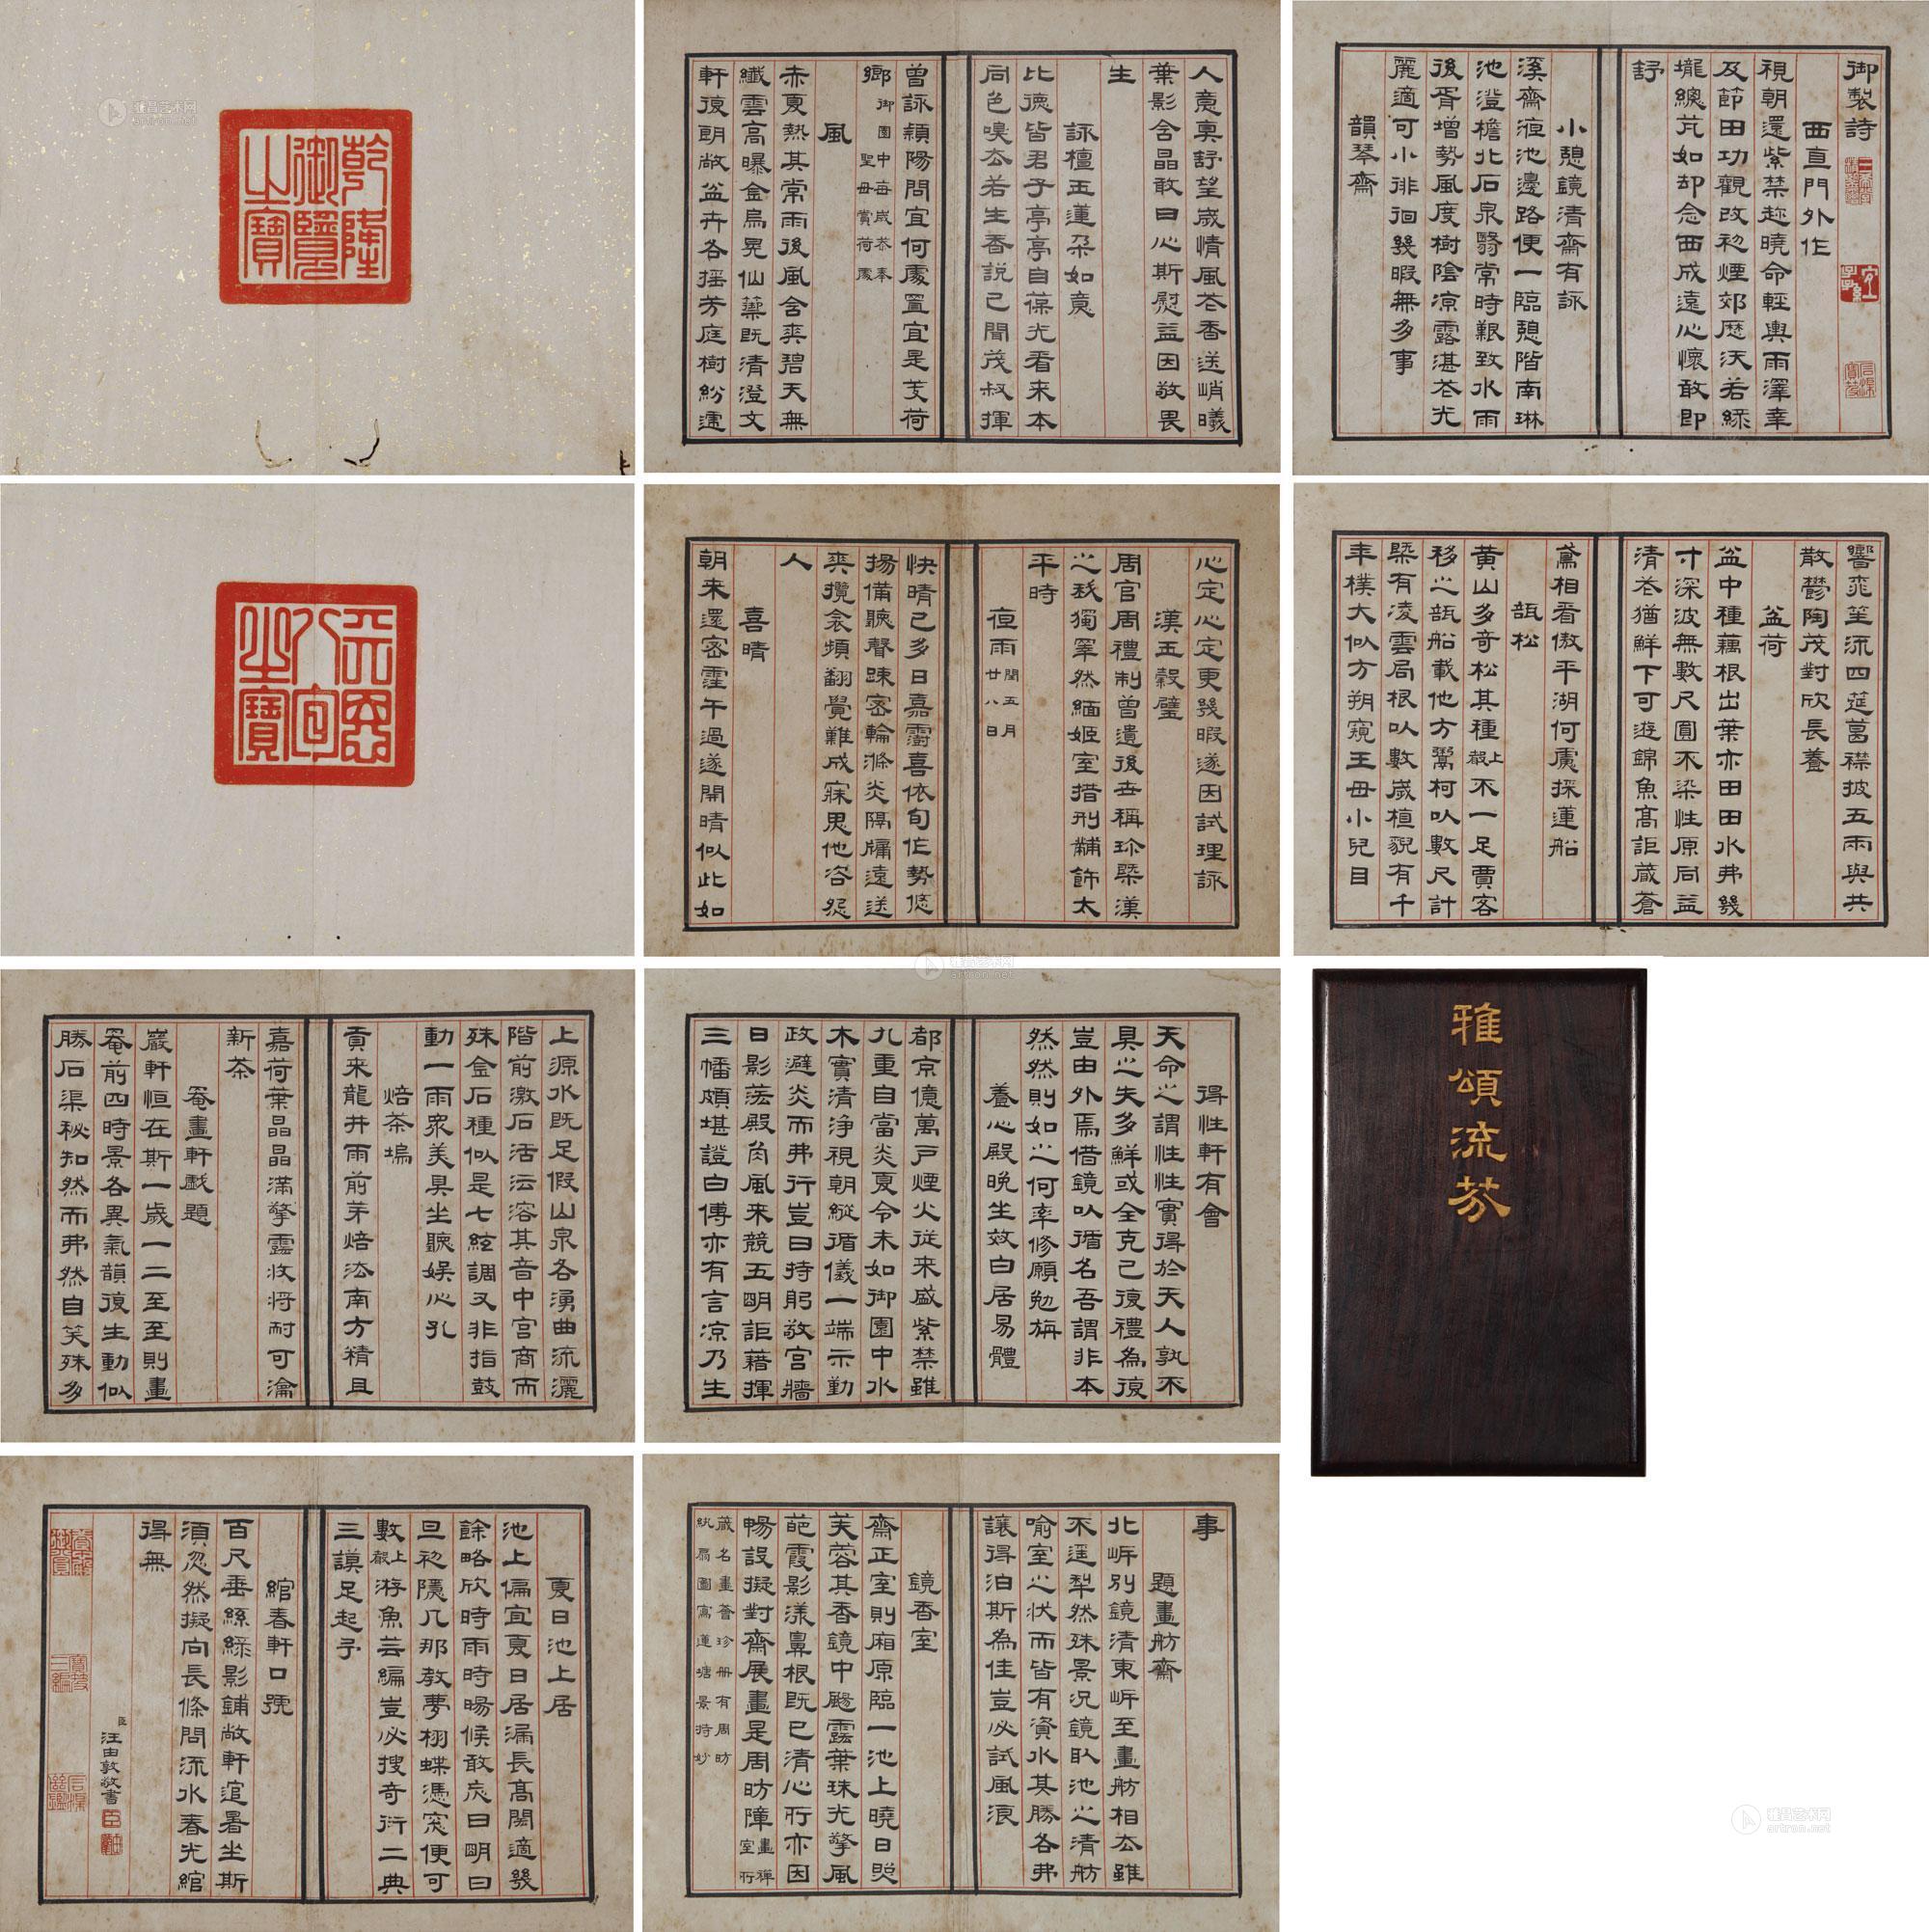 御製詩
西直門外作
視朝還紫禁趁曉命輕輿雨澤幸
及節田功觀改初煙郊歷沃若綠
壠總芃如却念西成遠心懷敢即
舒
小憩鏡清齋有詠
溪齋液池邊路便一臨憩階南琳
池澄檐北石泉翳常時艱致水雨
後胥增勢風度樹陰凉露湛花光
麗適可小徘徊幾暇無多事
韻琴齋
人意奭舒望歲情風花香送峭曦
葉影含晶敢曰心斯慰益因敬畏
生
詠檀玉蓮朵如意
比德皆君子亭亭自葆光看来本
同色嗅去若生香說已聞茂叔揮
曾詠穎陽問宜何處置宜是芰荷
鄉御園中每歲恭奉聖母賞荷處
風
赤夏熱其常雨後風含爽碧天無
纖雲高曝金烏晃仙蘂既清澄文
軒復朗敞盆卉各摇芳庭樹紛遞
乾隆御覽之寶
響窕笙流四筵葛襟披五雨與共
散鬱陶茂對欣長養
盆荷
盆中種藕根出葉亦田田水弗幾
寸深波無數尺圓不染性原同益
清花猶鮮下可遊錦魚髙詎蔵蒼
鳶相看傲平湖何處採蓮船
瓿松
黄山多奇松其種上聲不一足賈客
移之瓿船載他方鬻柯以數尺計
槩有凌雲局根以數歲植貌有千
年樸大似方朔窺王母小兒目
心定心定更幾暇遂因試理詠
漢五穀璧
周官周禮制曾遺後去稱珍槩漢
之玩獨睪然緬姬室措刑黼飾太
平時
夜雨閏五月廿八日
快晴已多日嘉霌喜依旬作勢悠
揚備聽聲踈密輪滌炎隔牖遠送
爽攬衾頻翻覺難成寐思他咨怨
人
喜晴
朝来還密霔午過遂開晴似此如
八徵耄念之寶
得性軒有會
天命之謂性性實得於天人孰不
具之失多鮮或全克己復禮為復
豈由外焉借鏡以循名吾謂非本
然然則如之何率修願勉旃
養心殿晚坐效白居易體
都京億萬戶煙火従来盛紫禁雖
九重自當炎夏令未如御園中水
木實清浄視朝縱循儀一端示勤
政避炎而弗行豈曰持躬敬宫牆
日影落殿角風来競五明詎藉揮
三幡頗堪證白傅亦有言凉乃生
上源水既足假山泉各湧曲流灑
階前激石活法溶其音中宫商而
殊金石種似是七絃調又非指鼓
動一雨衆美具坐聽娱心孔
焙茶塢
貢来龍井雨前芽焙法南方精且
嘉荷葉晶晶滿擎露收将耐可瀹
新茶
罨畫軒戲題
巖軒恒在斯一歲一二至至則畫
罨前四時景各異氣韻復生動似
勝石渠秘扣然而弗然自笑殊多
事
題畫舫齋
北㟁別鏡清東㟁至畫舫相去雖
不遥犁然殊景况鏡臥池之清舫
喻室之状而皆有資水其勝各弗
讓得泊斯為佳豈必試風浪
鏡香室
齋正室則廂原臨一池上曉日照
芙蓉其香鏡中颺露葉珠光擎風
葩霞影漾鼻根既已清心所亦因
暢設擬對齋展畫是周昉障畫禪室所
蔵名畫薈珍册有周昉
紈扇圖寫蓮塘景特妙
夏日池上居
池上偏宜夏日居漏長髙閣適幾
餘略欣時雨時暘候敢戾日明曰
旦初隱几那教夢栩蝶憑窓便可
數上聲游魚芸編豈必搜奇衍二典
三謨足起予
綰春軒口號
百尺垂絲綠影鋪敞軒逭暑坐斯
須忽然擬向長條問流水春光綰
得無
臣汪由敦敬書
雅頌流芬